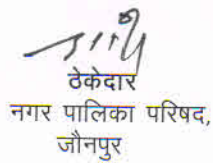 ठेकेदार
नगर पालिका परिषद,
जौनपुर